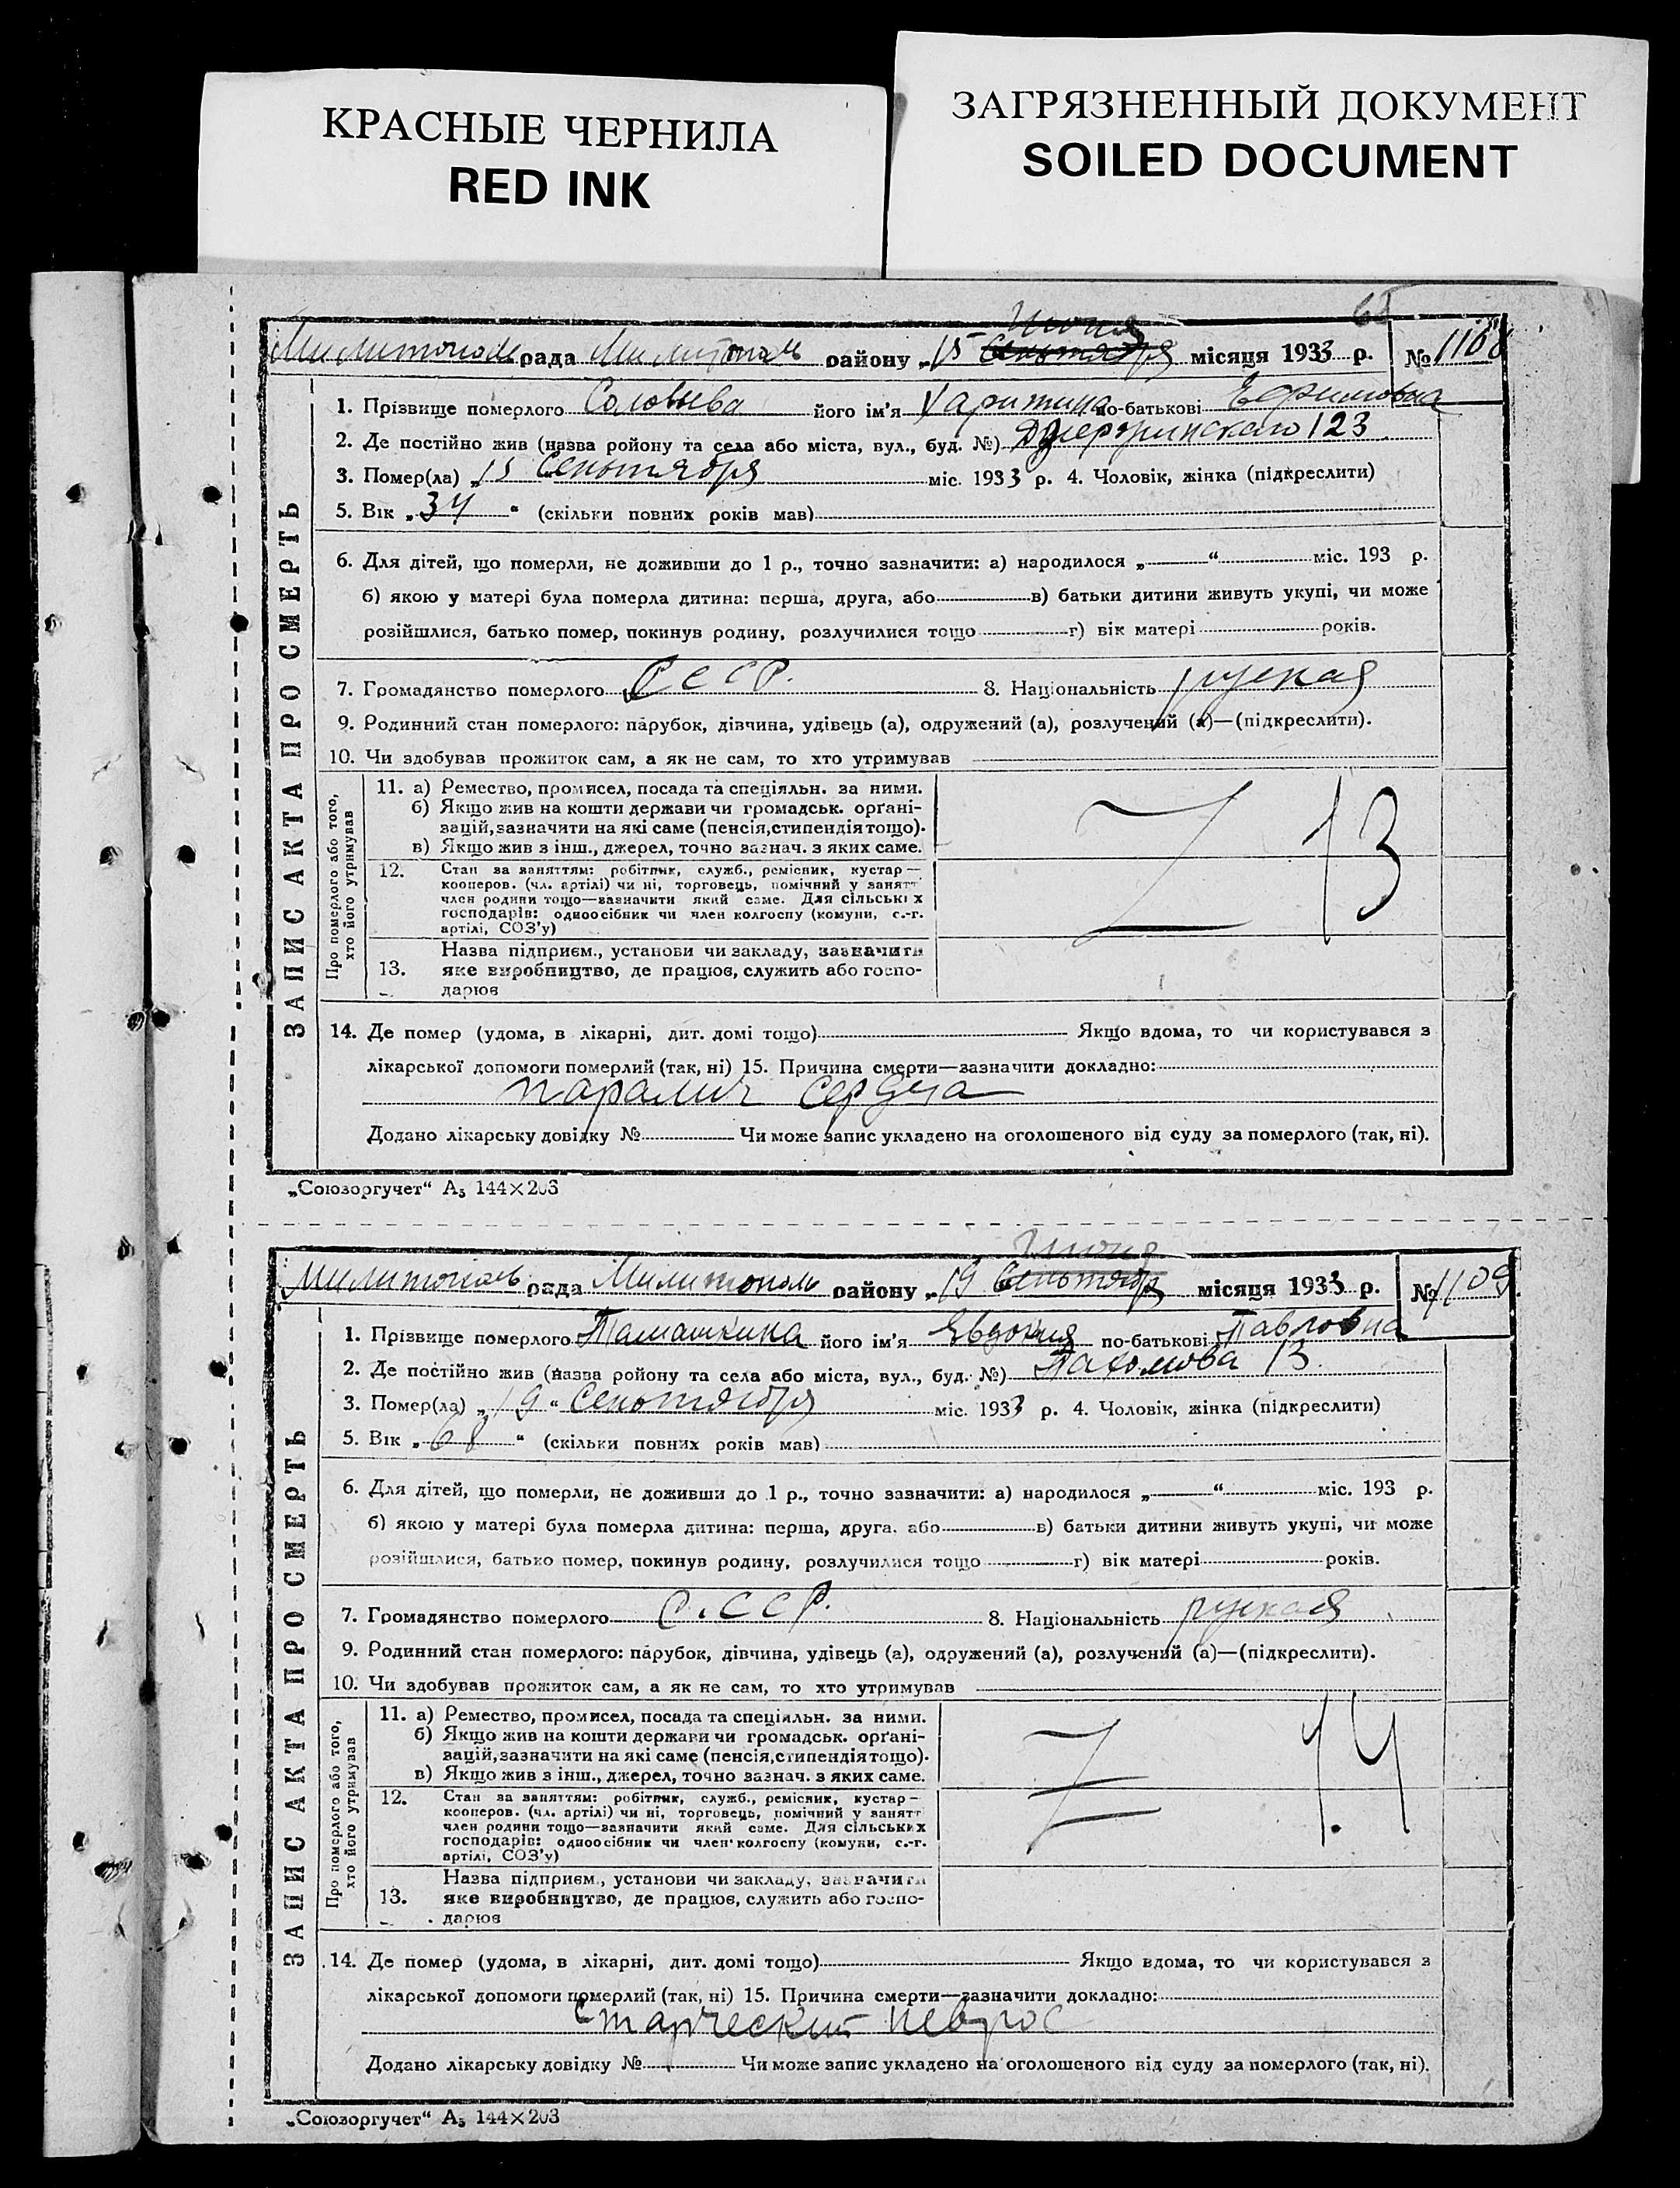 КРАСНЫЕ ЧЕРНИЛА
RED INK
ЗАГРЯЗНЕННЫЙ ДОКУМЕНТ
SOILED DOCUMENT
68
Июня
Милитополь рада Милитополь району „15 Сеньтября місяця 1933 р. № 1108
ЗАПИС АКТА ПРО СМЕРТЬ
1. Прізвище померлого Соловьева його ім'я Харитина по-батькові Ефимовна
2. Де постійно жив (назва ройону та села або міста, вул., буд. №) Дзержинского 123
3. Помер(ла) „15 Сеньтября міс. 1933 р. 4. Чоловік, жінка (підкреслити)
5. Вік „34“ (скільки повних років мав)
6. Для дітей, що померли, не доживши до 1 р., точно зазначити: а) народилося „ “ міс. 193 р.
б) якою у матері була померла дитина: перша, друга, або в) батьки дитини живуть укупі, чи може
розійшлися, батько помер, покинув родину, розлучилися тощо г) вік матері років.
7. Громадянство померлого СССР. 8. Національність руская
9. Родинний стан померлого: парубок, дівчина, удівець (а), одружений (а), розлучений (а)—(підкреслити).
10. Чи здобував прожиток сам, а як не сам, то хто утримував
Про померлого або того, хто його утримував
11. а) Ремество, промисел, посада та спеціяльн. за ними.
б) Якщо жив на кошти держави чи громадськ. орґані-
зацій, зазначити на які саме (пенсія, стипендія тощо).
в) Якщо жив з інш., джерел, точно зазнач. з яких саме.
13
12. Стан за заняттям: робітник, служб., ремісник, кустар—
кооперов. (чл. артілі) чи ні, торговець, помічний у занятт
член родини тощо—зазначити який саме. Для сільських
господарів: одноосібник чи член колгоспу (комуни, с.-г.
артілі, СОЗ'у)
13. Назва підприєм., установи чи закладу, зазначити
яке виробництво, де працює, служить або госпо-
дарює
14. Де помер (удома, в лікарні, дит. домі тощо) Якщо вдома, то чи користувався з
лікарської допомоги померлий (так, ні) 15. Причина смерти—зазначити докладно:
паралич сердца
Додано лікарську довідку № Чи може запис укладено на оголошеного від суду за померлого (так, ні).
„Союзоргучет“ А₅ 144×203
Июня
Милитополь рада Милитополь району „19 Сеньтябр місяця 1933 р. № 1109
ЗАПИС АКТА ПРО СМЕРТЬ
1. Прізвище померлого Талашкина його ім'я Евдокия по-батькові Павловна
2. Де постійно жив (назва ройону та села або міста, вул., буд. №) Пахомова 13
3. Помер(ла) „19“ Сеньтября міс. 1933 р. 4. Чоловік, жінка (підкреслити)
5. Вік „68“ (скільки повних років мав)
6. Для дітей, що померли, не доживши до 1 р., точно зазначити: а) народилося „ “ міс. 193 р.
б) якою у матері була померла дитина: перша, друга, або в) батьки дитини живуть укупі, чи може
розійшлися, батько помер, покинув родину, розлучилися тощо г) вік матері років.
7. Громадянство померлого С.ССР. 8. Національність руская
9. Родинний стан померлого: парубок, дівчина, удівець (а), одружений (а), розлучений (а)—(підкреслити).
10. Чи здобував прожиток сам, а як не сам, то хто утримував
Про померлого або того, хто його утримував
11. а) Ремество, промисел, посада та спеціяльн. за ними.
б) Якщо жив на кошти держави чи громадськ. орґані-
зацій, зазначити на які саме (пенсія, стипендія тощо).
в) Якщо жив з інш., джерел, точно зазнач. з яких саме.
14
12. Стан за заняттям: робітник, служб., ремісник, кустар—
кооперов. (чл. артілі) чи ні, торговець, помічний у занятт
член родини тощо—зазначити який саме. Для сільських
господарів: одноосібник чи член колгоспу (комуни, с.-г.
артілі, СОЗ'у)
13. Назва підприєм., установи чи закладу, зазначити
яке виробництво, де працює, служить або госпо-
дарює
14. Де помер (удома, в лікарні, дит. домі тощо) Якщо вдома, то чи користувався з
лікарської допомоги померлий (так, ні) 15. Причина смерти—зазначити докладно:
старческий неврос
Додано лікарську довідку № Чи може запис укладено на оголошеного від суду за померлого (так, ні).
„Союзоргучет“ А₅ 144×203